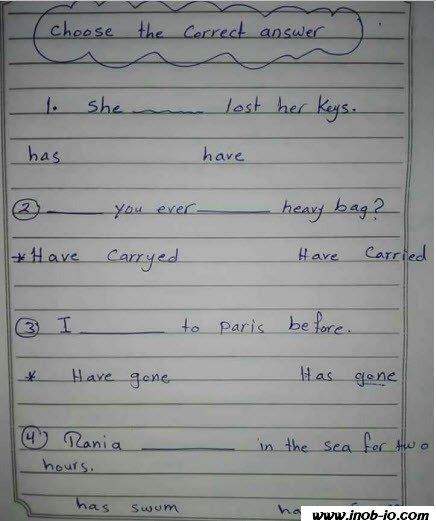 Choose the Correct answer
1. She ______ lost her keys.
has have
② ______ you ever ______ heavy bag?
*Have Carryed Have Carried
③ I ______ to paris before.
* Have gone Has gone
④ Rania ______ in the sea for two
hours.
has swum
www.inob-io.com